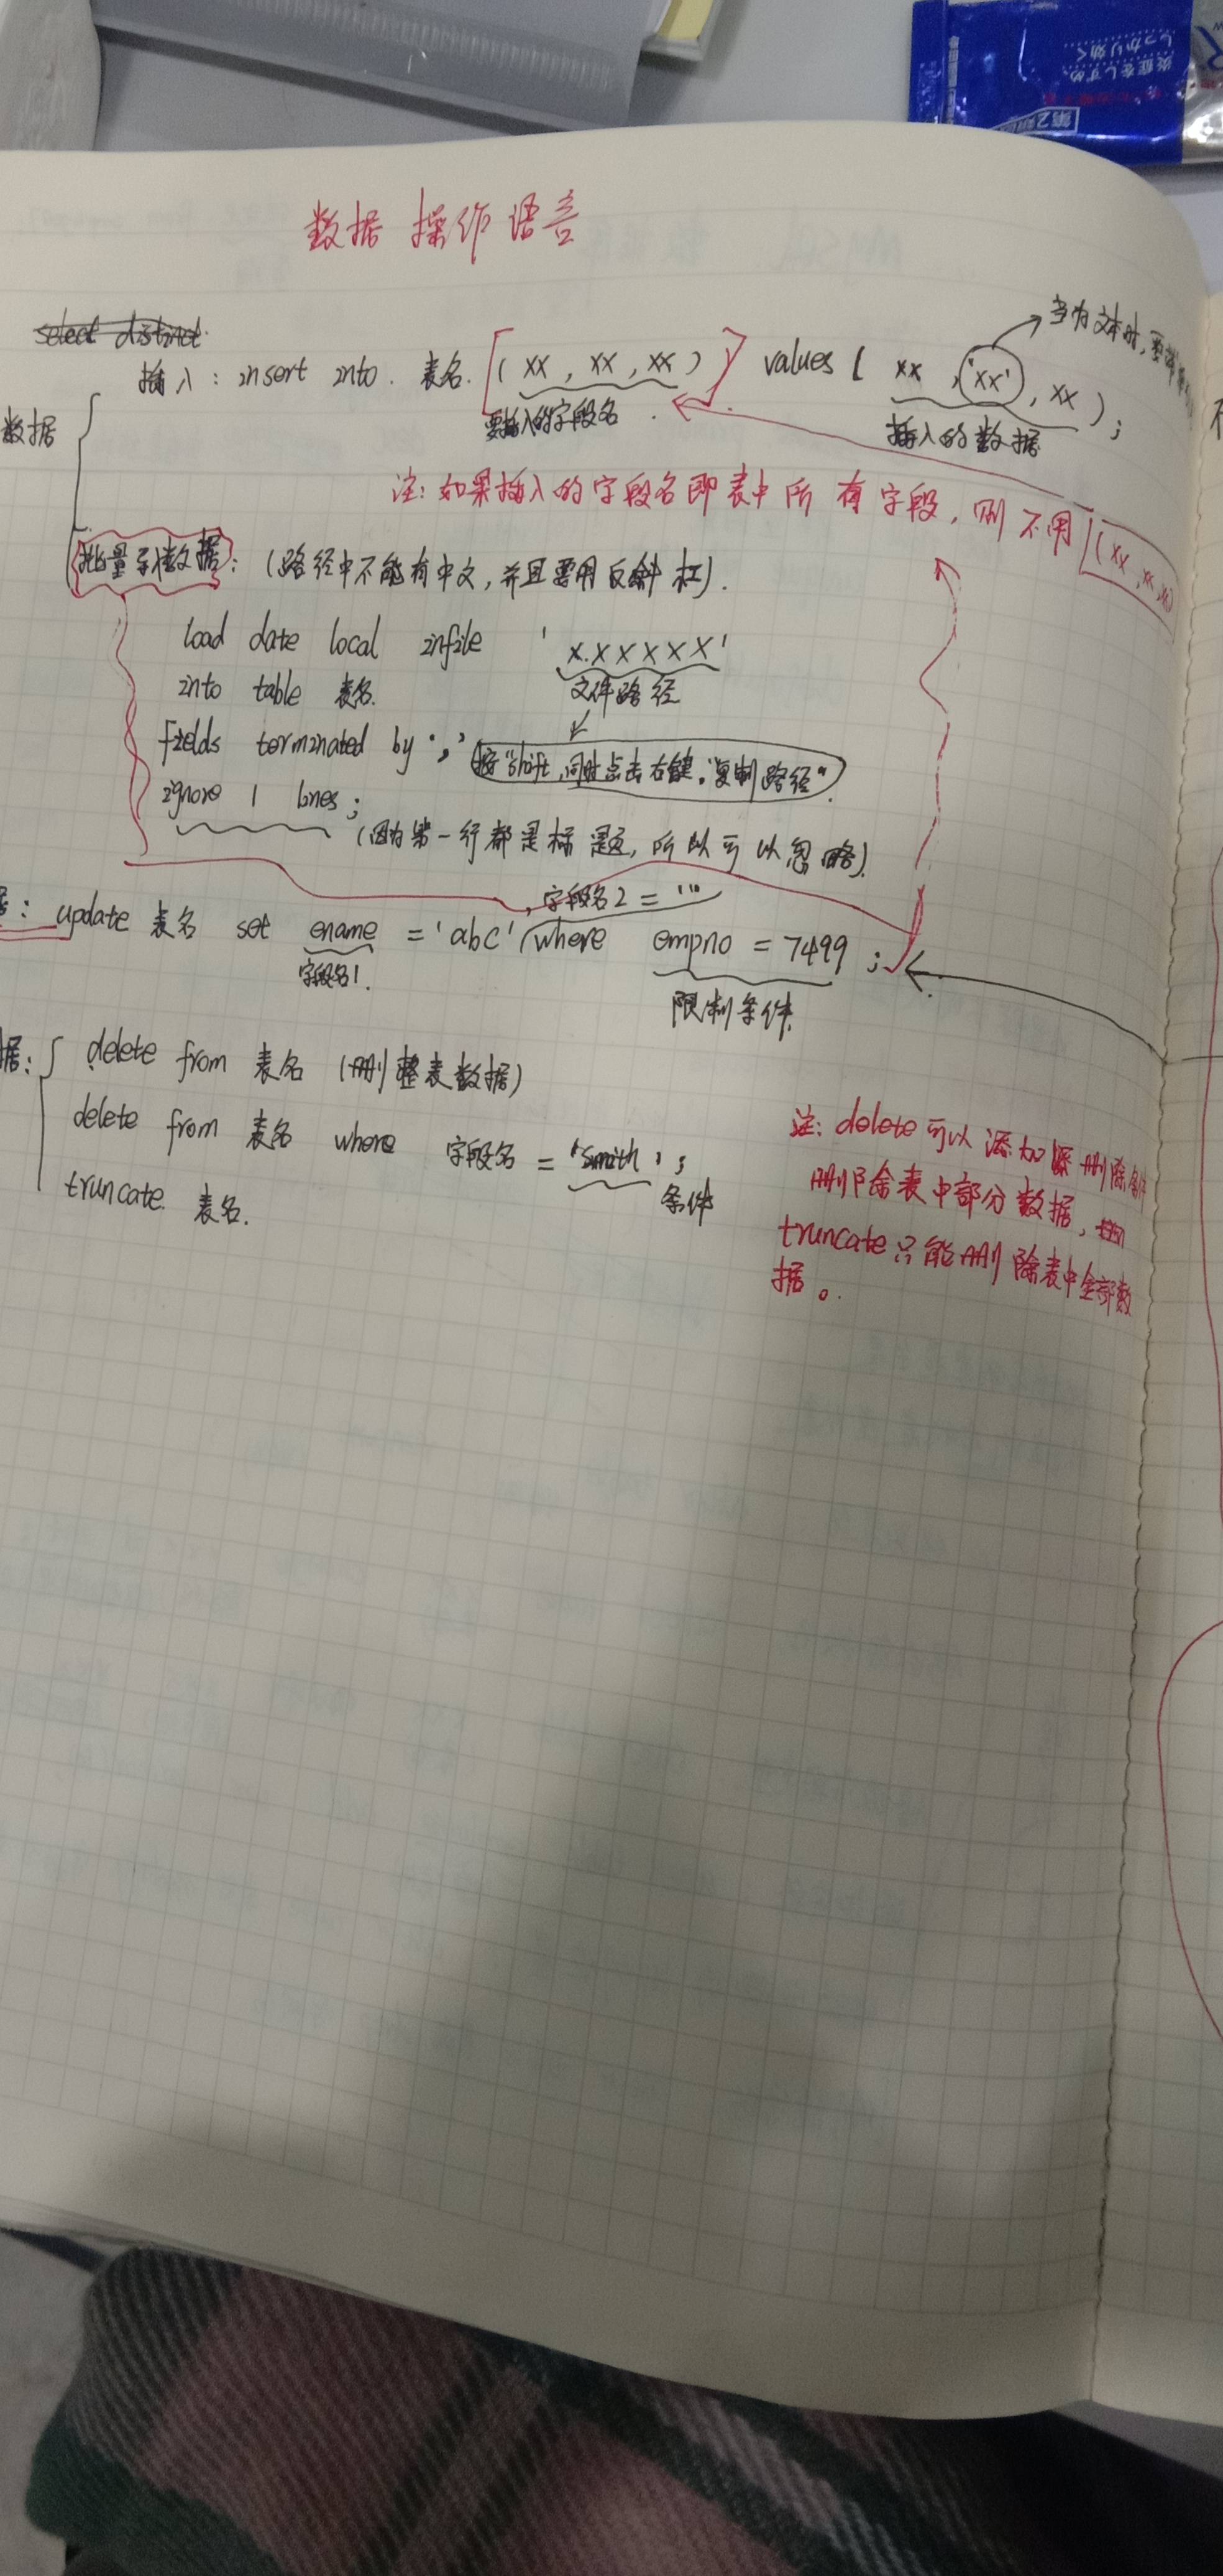 炎症をしずめ、
しっかり効く
第2
数据操作语言
select distinct
当为文本时,
插入: insert into 表名 [(xx, xx, xx)] values (xx, 'xx', xx);
数据
要插入的字段名
插入的数据
注:如果插入的字段名即表中所有字段,则不用[(xx, xx, xx)
批量导入数据:(路径中不能有中文,并且要用反斜杠).
load date local infile 'x.xxxxx'
文件路径
into table 表名.
fields terminated by ',' (按"shift,同时点击右键."复制路径"
ignore 1 lines;
(因为第一行都是标题,所以可以忽略).
,字段名2 = '''
: update 表名 set ename = 'abc' where empno = 7499;
字段名1.
限制条件.
据: delete from 表名 (删整表数据)
delete from 表名 where 字段名 = 'smith';
条件
truncate 表名.
注: delete可以添加删除条件
删除表中部分数据,
truncate只能删除表中全部数
据。